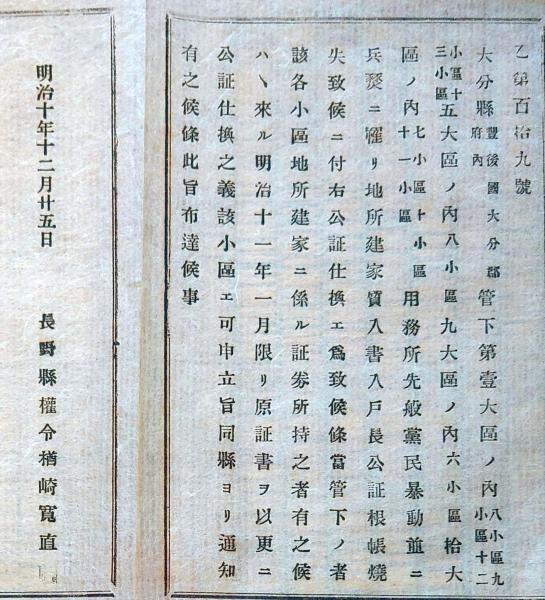 乙第百拾九號
大分縣豐後國大分郡府內管下第壹大區ノ內八小區九小區十二
小區十三小區五大區ノ內八小區九大區ノ內六小區拾大
區ノ內七小區十小區十一小區用務所先般黨民暴動並ニ
兵燹ニ罹リ地所建家質入書入戶長公証根帳燒
失致候ニ付右公証仕換エ爲致候條當管下ノ者
該各小區地所建家ニ係ル証券所持之者有之候
ハヽ來ル明治十一年一月限リ原証書ヲ以更ニ
公証仕換之義該小區エ可申立旨同縣ヨリ通知
有之候條此旨布達候事
明治十年十二月廿五日
長野縣權令楢崎寬直